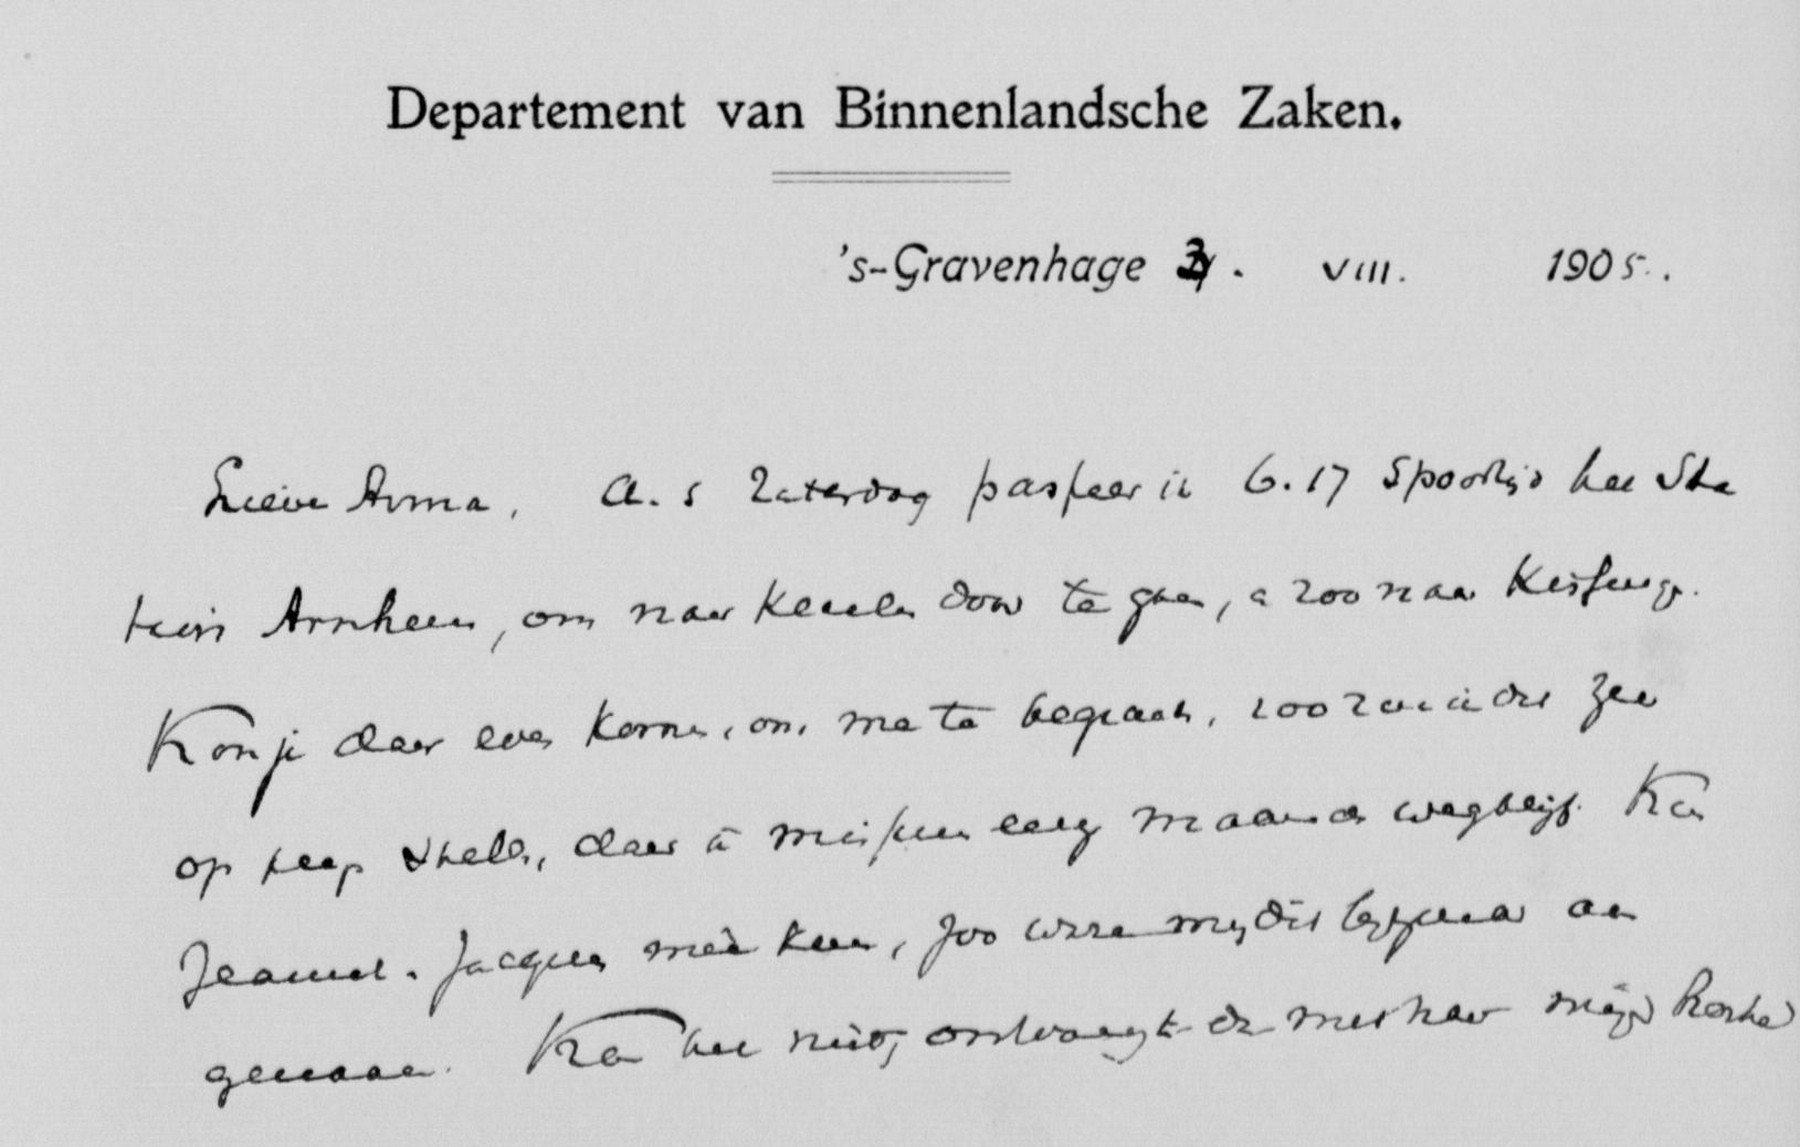 Departement van Binnenlandsche Zaken.
's-Gravenhage 3. VIII. 1905.
Lieve Anna, A. s Zaterdag passeer ik 6.17 Spoortijd het Sta
tion Arnhem, om naar Keulen door te gaan, en zoo naar Kissingen.
Kon je daar even komen, om me te begroeten, zoo zou ik dit zeer
op prijs stellen, daar ik misschien eenige maanden wegblijf. Kan
Jeannet. Jacques meê komen, zoo ware mij dit bijzonder aan
genaam. Kan het niet, ontvangt dan met haar mijn harte